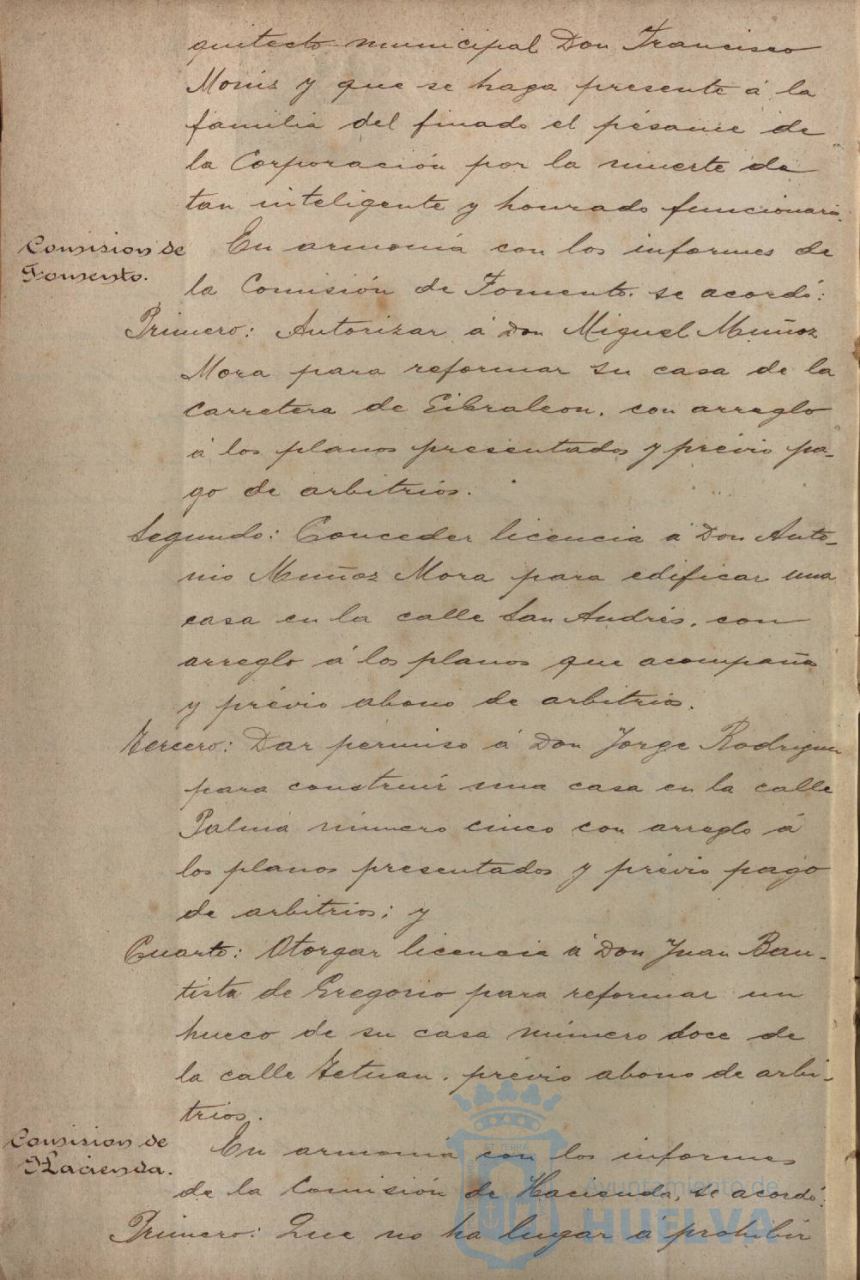 quitecto municipal Don Francisco
Monís y que se haga presente á la
familia del finado el pésame de
la Corporación por la muerte de
tan inteligente y honrado funcionario.
Comision de
Fomento.
En armonía con los informes de
la Comisión de Fomento, se acordó:
Primero: Autorizar á Don Miguel Muñoz
Mora para reformar su casa de la
carretera de Gibraleon, con arreglo
á los planos presentados y prévio pa-
go de arbitrios.
Segundo: Conceder licencia á Don Anto-
nio Muñoz Mora para edificar una
casa en la calle San Andrés, con
arreglo á los planos que acompaña
y prévio abono de arbitrios.
Tercero: Dar permiso á Don Jorge Rodriguez
para construir una casa en la calle
Palma número cinco con arreglo á
los planos presentados y prévio pago
de arbitrios; y
Cuarto: Otorgar licencia á Don Juan Bau-
tista de Gregorio para reformar un
hueco de su casa número doce de
la calle Tetuan, prévio abono de arbi-
trios.
Comision de
Hacienda.
En armonía con los informes
de la Comisión de Hacienda, se acordó:
Primero: Que no ha lugar á prohibir
Ayuntamiento de
HUELVA